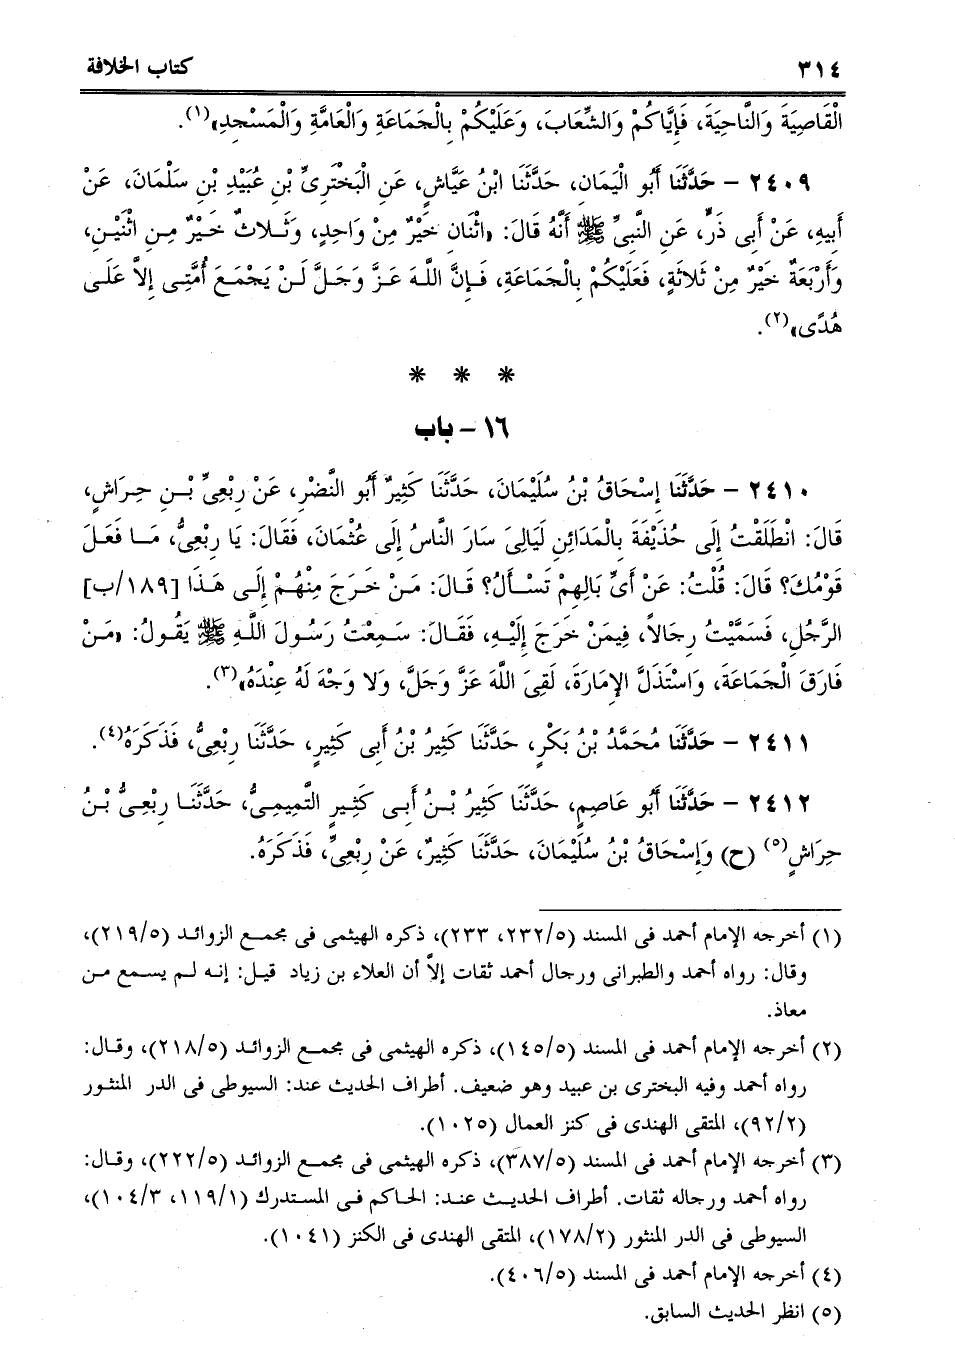 ٣١٤ كتاب الخلافة
الْقَاصِيَةَ وَالنَّاحِيَةَ، فَإِيَّاكُمْ وَالشِّعَابَ، وَعَلَيْكُمْ بِالْجَمَاعَةِ وَالْعَامَّةِ وَالْمَسْجِدِ»(١).
٢٤٠٩ - حَدَّثَنَا أَبُو الْيَمَانِ، حَدَّثَنَا ابْنُ عَيَّاشٍ، عَنِ الْبَخْتَرِىِّ بْنِ عُبَيْدِ بْنِ سَلْمَانَ، عَنْ
أَبِيهِ، عَنْ أَبِى ذَرٍّ، عَنِ النَّبِىِّ ﷺ أَنَّهُ قَالَ: «اثْنَانِ خَيْرٌ مِنْ وَاحِدٍ، وَثَلاثٌ خَيْرٌ مِنِ اثْنَيْنِ،
وَأَرْبَعَةٌ خَيْرٌ مِنْ ثَلاثَةٍ، فَعَلَيْكُمْ بِالْجَمَاعَةِ، فَإِنَّ اللَّهَ عَزَّ وَجَلَّ لَنْ يَجْمَعَ أُمَّتِى إِلاَّ عَلَى
هُدًى»(٢).
* * *
١٦ - باب
٢٤١٠ - حَدَّثَنَا إِسْحَاقُ بْنُ سُلَيْمَانَ، حَدَّثَنَا كَثِيرٌ أَبُو النَّضْرِ، عَنْ رِبْعِىِّ بْنِ حِرَاشٍ،
قَالَ: انْطَلَقْتُ إِلَى حُذَيْفَةَ بِالْمَدَائِنِ لَيَالِىَ سَارَ النَّاسُ إِلَى عُثْمَانَ، فَقَالَ: يَا رِبْعِىُّ، مَا فَعَلَ
قَوْمُكَ؟ قَالَ: قُلْتُ: عَنْ أَىِّ بَالِهِمْ تَسْأَلُ؟ قَالَ: مَنْ خَرَجَ مِنْهُمْ إِلَى هَذَا [١٨٩/ب]
الرَّجُلِ، فَسَمَّيْتُ رِجَالاً، فِيمَنْ خَرَجَ إِلَيْهِ، فَقَالَ: سَمِعْتُ رَسُولَ اللَّهِ ﷺ يَقُولُ: «مَنْ
فَارَقَ الْجَمَاعَةَ، وَاسْتَذَلَّ الإِمَارَةَ، لَقِىَ اللَّهَ عَزَّ وَجَلَّ، وَلا وَجْهَ لَهُ عِنْدَهُ»(٣).
٢٤١١ - حَدَّثَنَا مُحَمَّدُ بْنُ بَكْرٍ، حَدَّثَنَا كَثِيرُ بْنُ أَبِى كَثِيرٍ، حَدَّثَنَا رِبْعِىُّ، فَذَكَرَهُ(٤).
٢٤١٢ - حَدَّثَنَا أَبُو عَاصِمٍ، حَدَّثَنَا كَثِيرُ بْنُ أَبِى كَثِيرٍ التَّمِيمِىُّ، حَدَّثَنَا رِبْعِىُّ بْنُ
حِرَاشٍ(٥) (ح) وَإِسْحَاقُ بْنُ سُلَيْمَانَ، حَدَّثَنَا كَثِيرٌ، عَنْ رِبْعِىٍّ، فَذَكَرَهُ.
(١) أخرجه الإمام أحمد فى المسند (٢٣٢/٥، ٢٣٣)، ذكره الهيثمى فى مجمع الزوائد (٢١٩/٥)،
وقال: رواه أحمد والطبرانى ورجال أحمد ثقات إلاَّ أن العلاء بن زياد قيل: إنه لم يسمع من
معاذ.
(٢) أخرجه الإمام أحمد فى المسند (١٤٥/٥)، ذكره الهيثمى فى مجمع الزوائد (٢١٨/٥)، وقال:
رواه أحمد وفيه البخترى بن عبيد وهو ضعيف. أطراف الحديث عند: السيوطى فى الدر المنثور
(٩٢/٢)، المتقى الهندى فى كنز العمال (١٠٢٥).
(٣) أخرجه الإمام أحمد فى المسند (٣٨٧/٥)، ذكره الهيثمى فى مجمع الزوائد (٢٢٢/٥)، وقال:
رواه أحمد ورجاله ثقات. أطراف الحديث عند: الحاكم فى المستدرك (١١٩/١، ١٠٤/٣)،
السيوطى فى الدر المنثور (١٧٨/٢)، المتقى الهندى فى الكنز (١٠٤١).
(٤) أخرجه الإمام أحمد فى المسند (٤٠٦/٥).
(٥) انظر الحديث السابق.